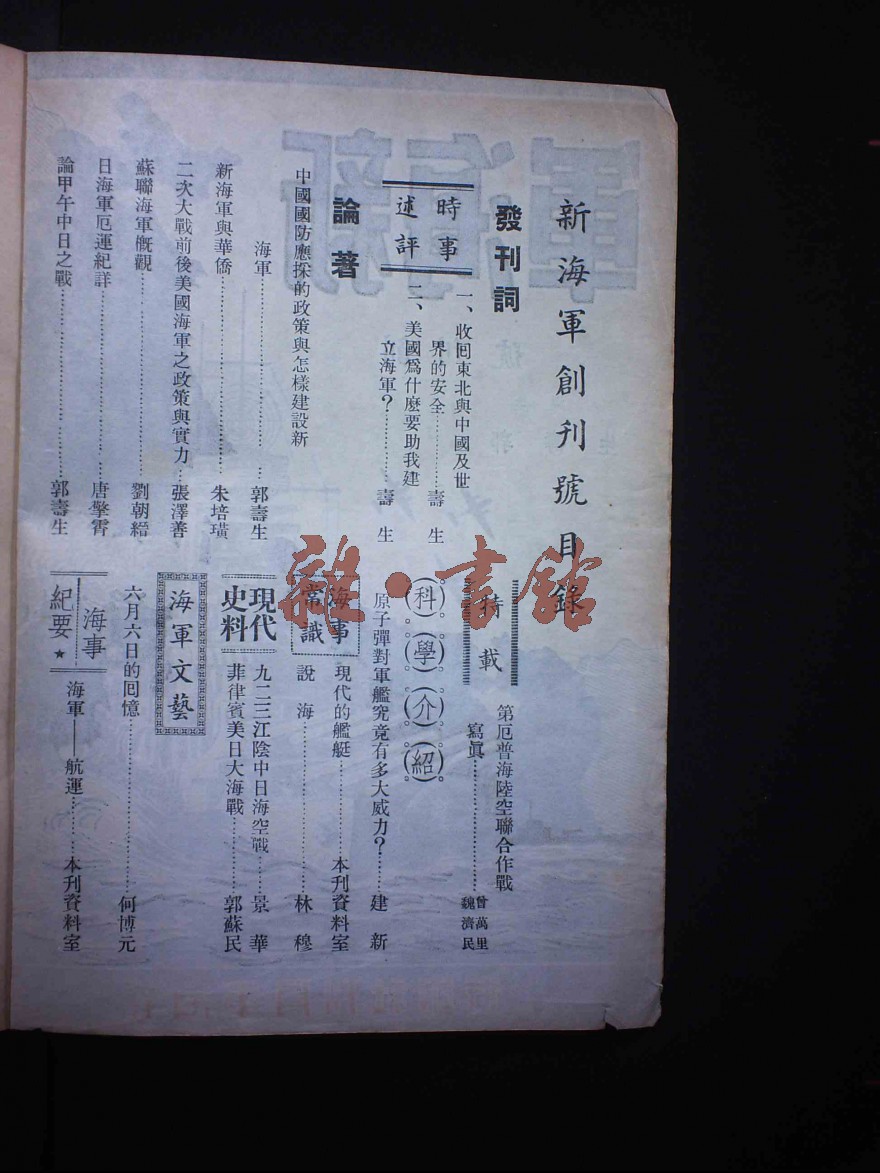 新海軍創刊號目錄
發刊詞
時事
述評
一、收回東北與中國及世
界的安全………壽 生
二、美國爲什麼要助我建
立海軍?………壽 生
論著
中國國防應採的政策與怎樣建設新
海軍………郭壽生
新海軍與華僑………朱培璜
二次大戰前後美國海軍之政策與實力…張澤善
蘇聯海軍概觀………劉朝縉
日海軍厄運紀詳………唐擎霄
論甲午中日之戰………郭壽生
特載
第厄普海陸空聯合作戰
寫眞………曾萬里
魏濟民
(科)(學)(介)(紹)
原子彈對軍艦究竟有多大威力?……建 新
海事
常識
現代的艦艇………本刊資料室
說 海………林 穆
現代
史料
九二三江陰中日海空戰……景 華
菲律賓美日大海戰………郭蘇民
海軍文藝
六月六日的回憶………何博元
海事
紀要★
海軍——航運………本刊資料室
雜·書館